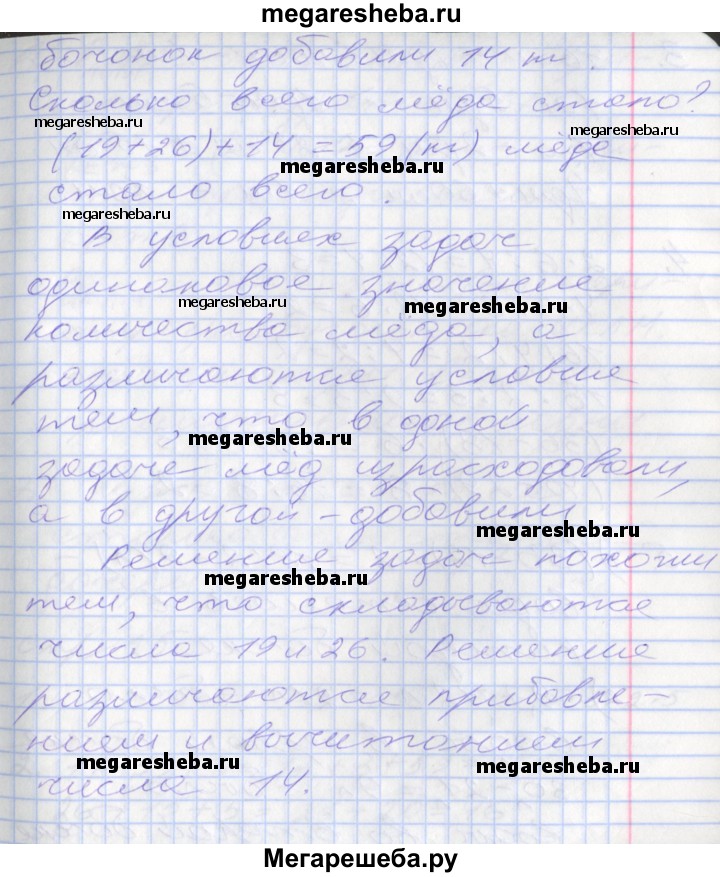 megaresheba.ru
бочонок добавили 14 кг.
megaresheba.ru
Сколько всего мёда стало?
megaresheba.ru megaresheba.ru
(19+26)+14=59 (кг) мёда
megaresheba.ru
стало всего.
megaresheba.ru
В условиях задач
одинаковое значение
megaresheba.ru megaresheba.ru
количества мёда, а
различаются условие
тем, что в одной
megaresheba.ru
задаче мёд израсходовали,
а в другой - добавили
megaresheba.ru
Решение задач похожи
megaresheba.ru
тем, что складываются
числа 19 и 26. Решение
различаются прибавле-
нием и вычитанием
megaresheba.ru megaresheba.ru
числа 14.
Мегарешеба.ру